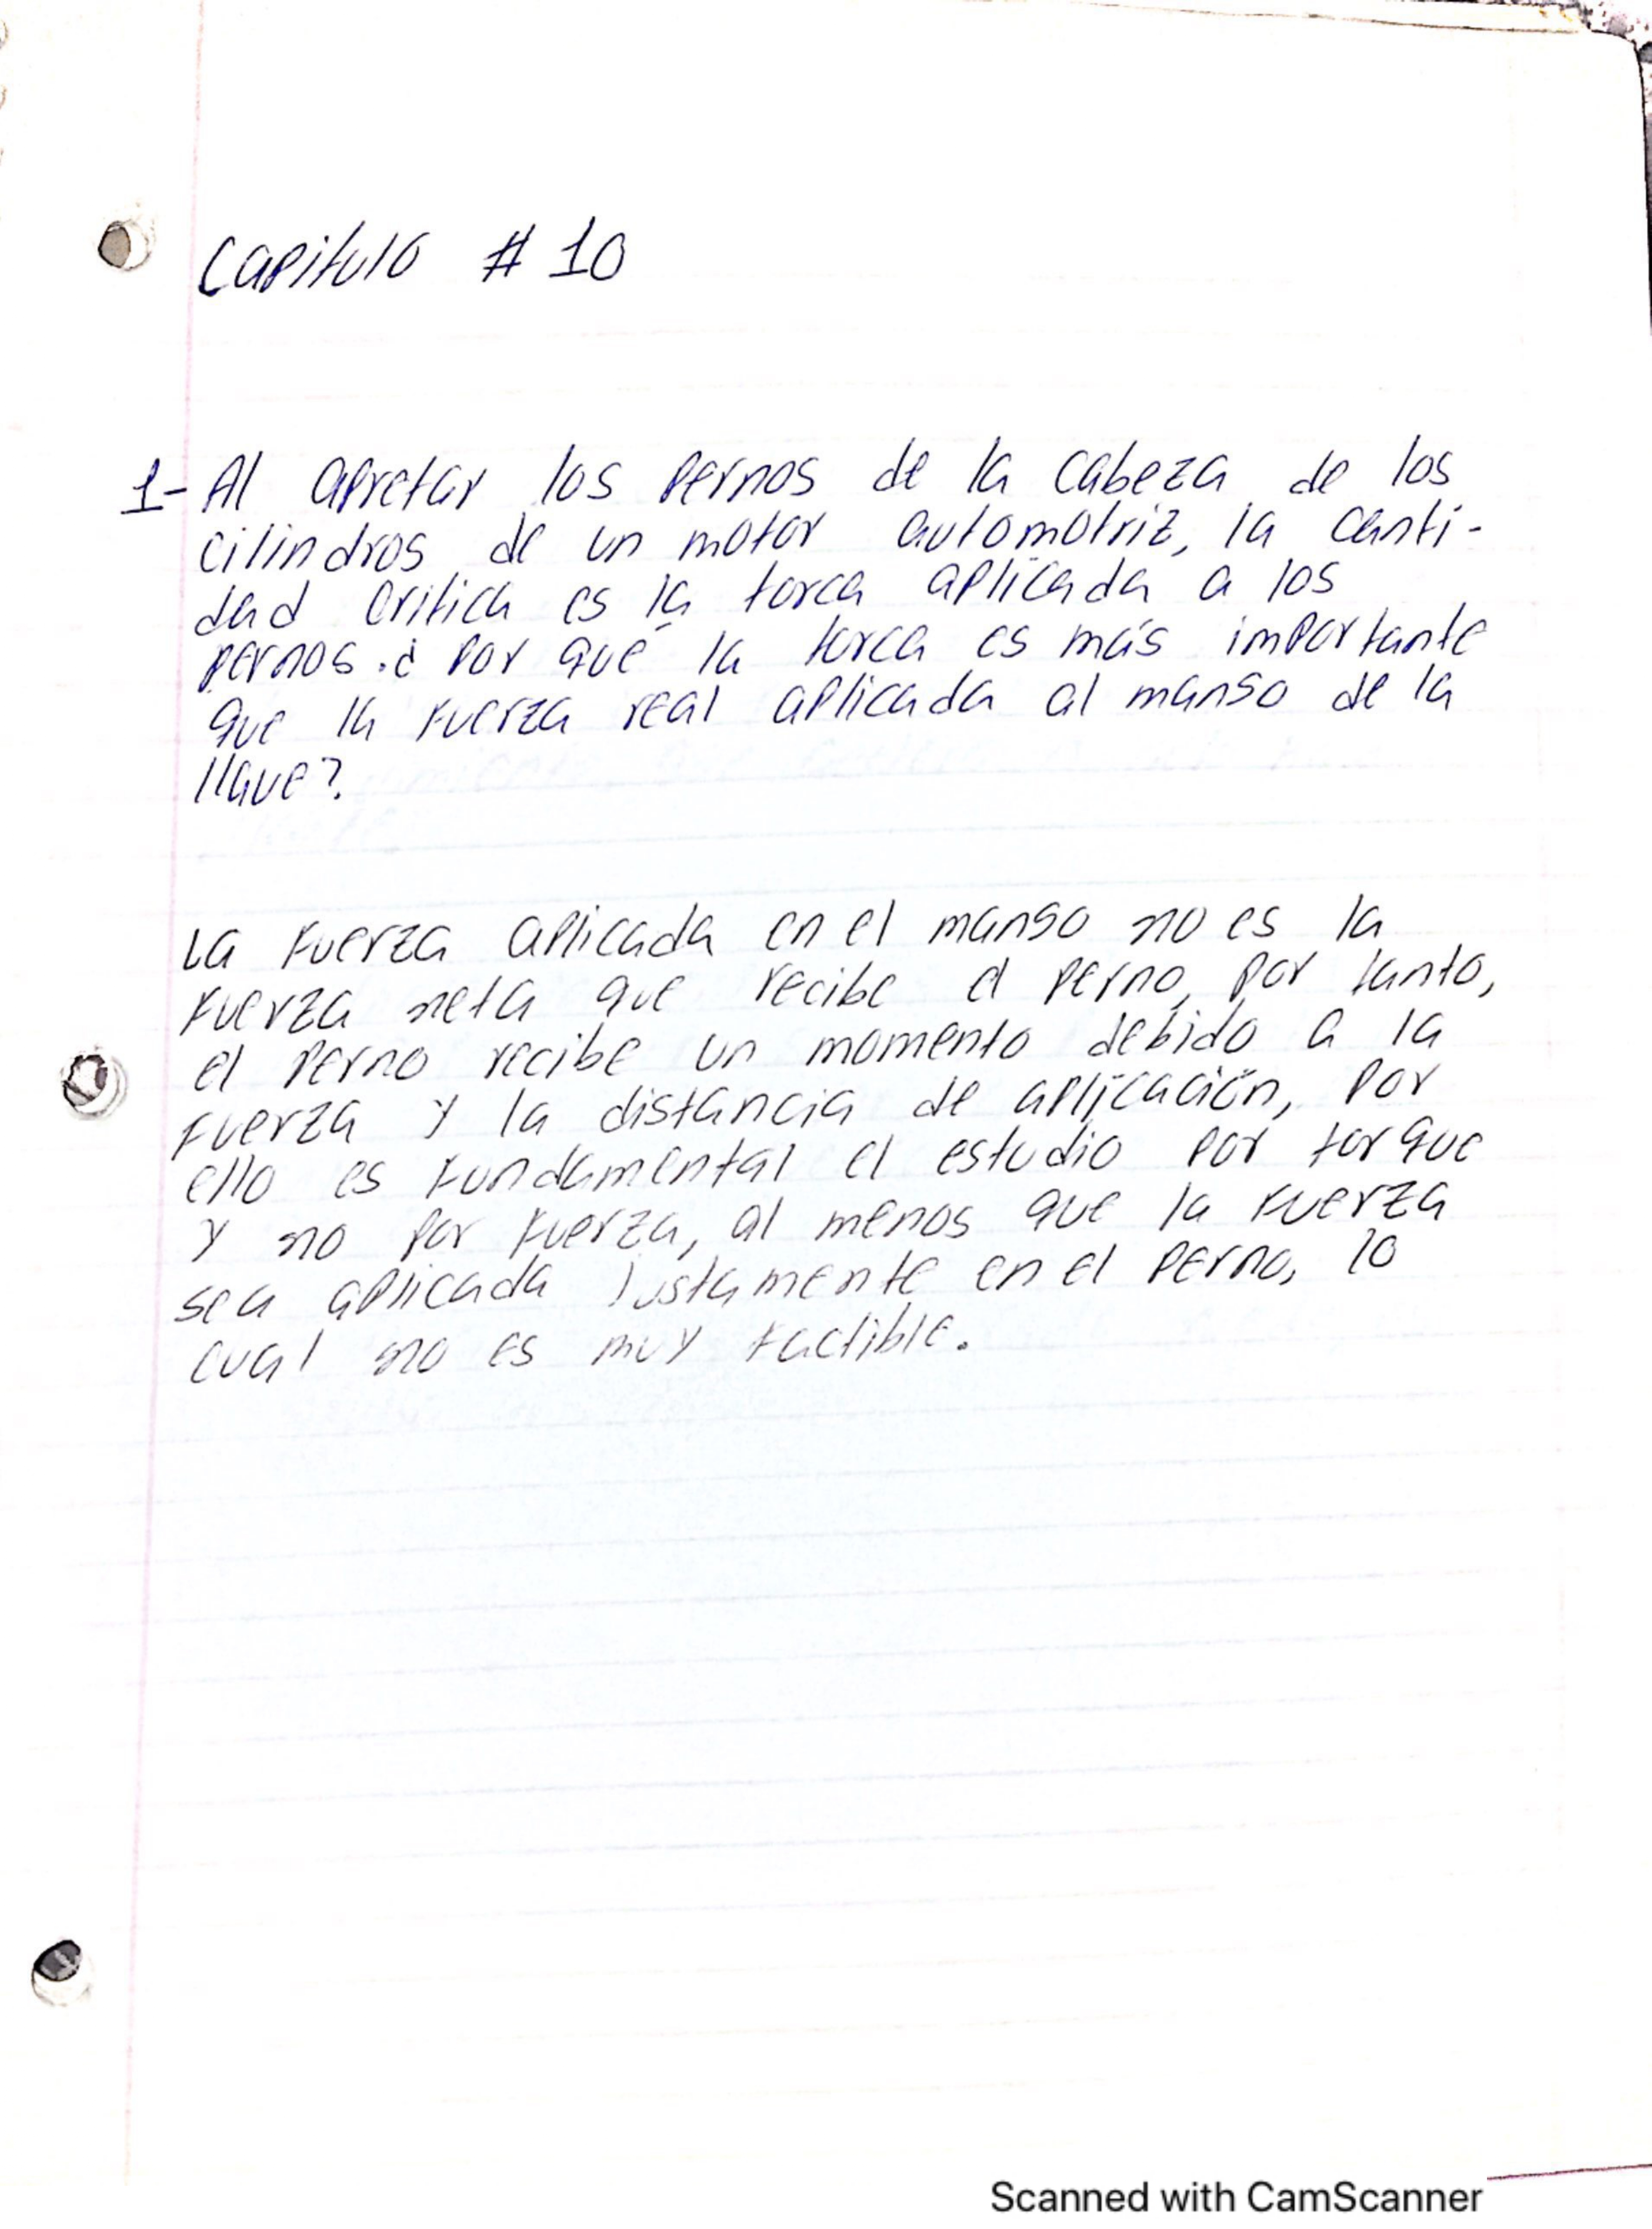 Capitulo # 10
1- Al apretar los pernos de la cabeza de los
cilindros de un motor automotriz, la canti-
dad critica es la torca aplicada a los
pernos. ¿ Por qué la torca es más importante
que la fuerza real aplicada al manso de la
llave?
La fuerza aplicada en el manso no es la
fuerza neta que recibe el perno, por tanto,
el perno recibe un momento debido a la
fuerza y la distancia de aplicación, por
ello es fundamental el estudio por torque
y no por fuerza, al menos que la fuerza
sea aplicada justamente en el perno, lo
cual no es muy factible.
Scanned with CamScanner